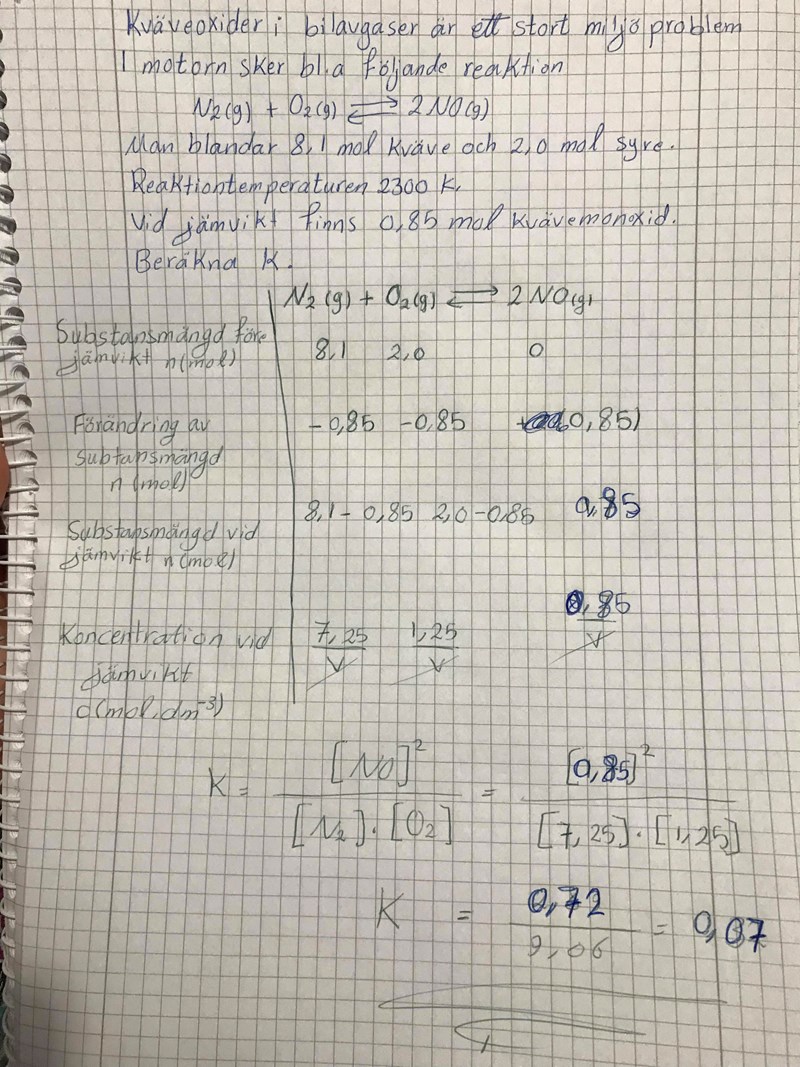 Kväveoxider i bilavgaser är ett stort miljö problem
I motorn sker bl.a följande reaktion
N₂(g) + O₂(g) ⇌ 2NO(g)
Man blandar 8,1 mol kväve och 2,0 mol syre.
Reaktiontemperaturen 2300 K.
Vid jämvikt finns 0,85 mol kvävemonoxid.
Beräkna K.
N₂(g) + O₂(g) ⇌ 2NO(g)
Substansmängd före
jämvikt n(mol) 8,1 2,0 0
Förändring av -0,85 -0,85 0,85)
Subtansmängd
n (mol)
8,1-0,85 2,0-0,85 0,85
Substansmängd vid
jämvikt n(mol)
Koncentration vid 7,25/V 1,25/V 0,85/V
jämvikt
c(mol.dm⁻³)
K = [NO]²/[N₂]·[O₂] = [0,85]²/[7,25]·[1,25]
K = 0,72/9,06 = 0,07